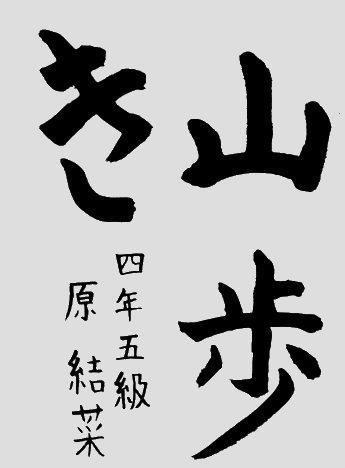 山歩
き
四年五級
原結菜